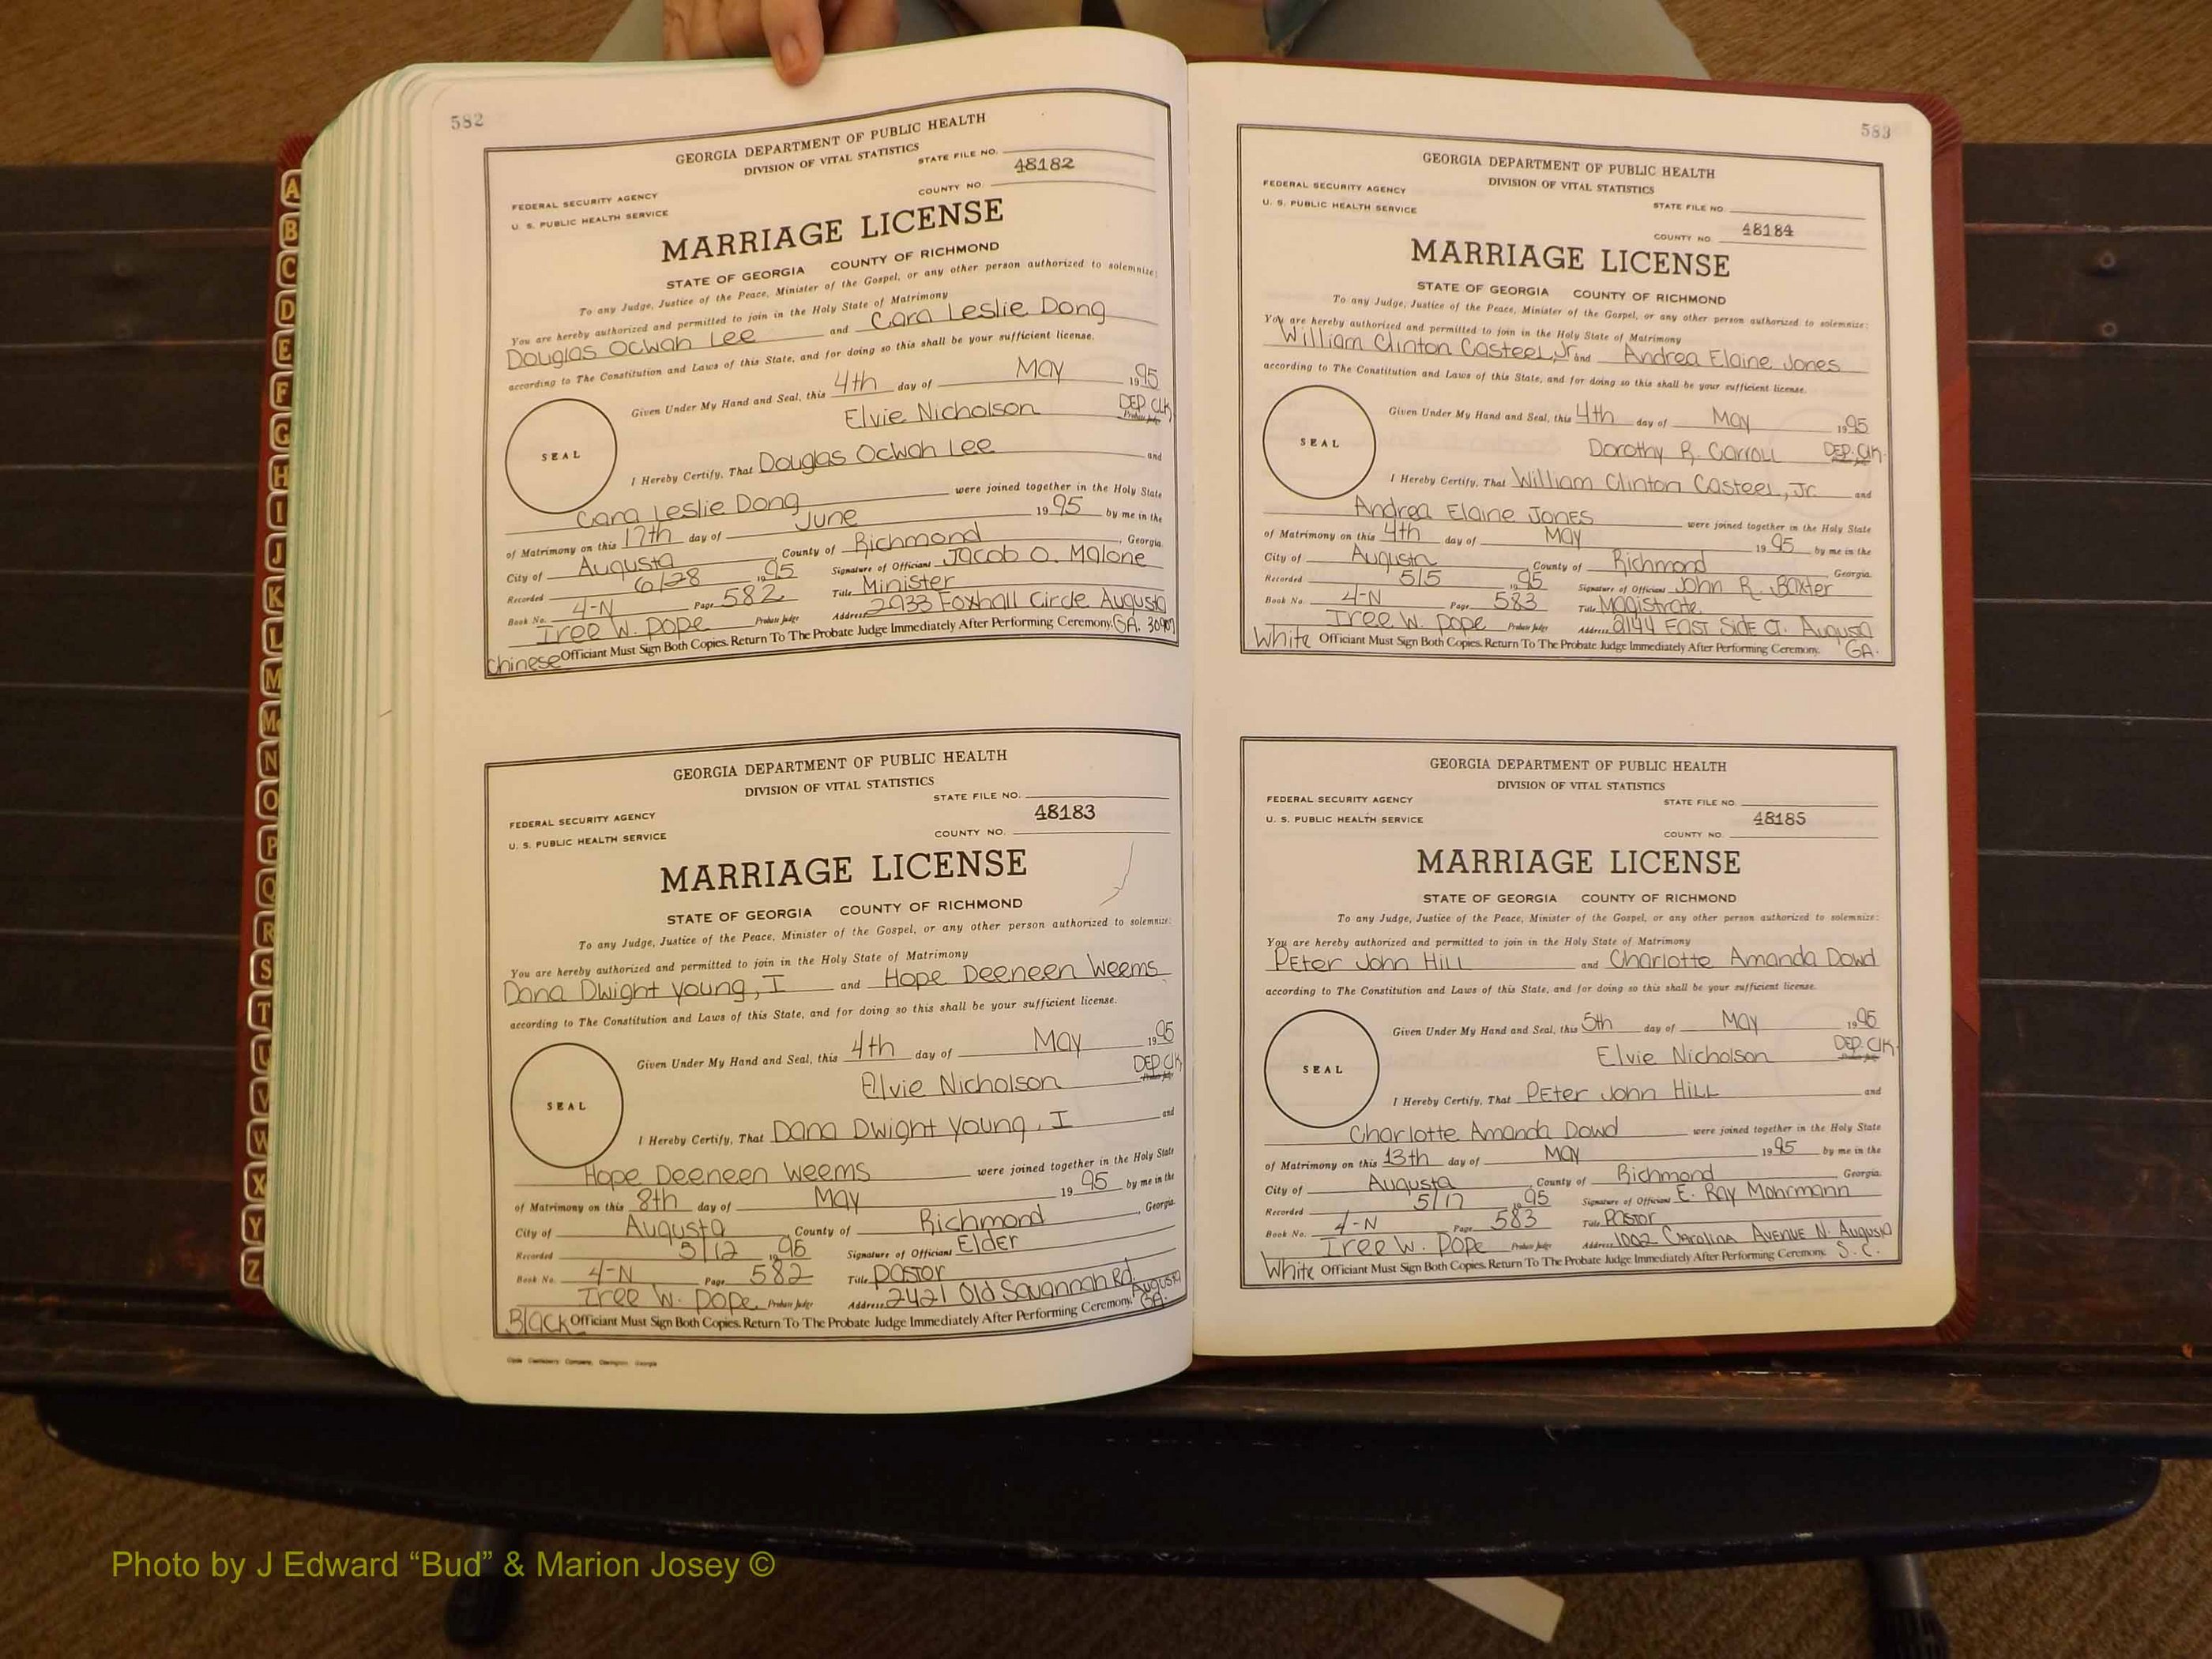 582
GEORGIA DEPARTMENT OF PUBLIC HEALTH
DIVISION OF VITAL STATISTICS
STATE FILE NO.
48182
FEDERAL SECURITY AGENCY
COUNTY NO.
U. S. PUBLIC HEALTH SERVICE
MARRIAGE LICENSE
STATE OF GEORGIA COUNTY OF RICHMOND
To any Judge, Justice of the Peace, Minister of the Gospel, or any other person authorized to solemnize:
You are hereby authorized and permitted to join in the Holy State of Matrimony
Douglas Ocwah Lee and Cara Leslie Dong
according to The Constitution and Laws of this State, and for doing so this shall be your sufficient license.
Given Under My Hand and Seal, this 4th day of May 1995
Elvie Nicholson DEP. Clk
Probate Judge
SEAL
I Hereby Certify, That Douglas Ocwah Lee and
Cara Leslie Dong were joined together in the Holy State
of Matrimony on this 17th day of June 1995 by me in the
City of Augusta, County of Richmond, Georgia.
Recorded 6/28 1995 Signature of Officiant Jacob O. Malone
Book No. 4-N Page 582 Title Minister
Iree W. Pope Probate Judge Address 2933 Foxhall Circle Augusta
GA. 30907
Chinese Officiant Must Sign Both Copies. Return To The Probate Judge Immediately After Performing Ceremony.
GEORGIA DEPARTMENT OF PUBLIC HEALTH
DIVISION OF VITAL STATISTICS
STATE FILE NO.
48183
FEDERAL SECURITY AGENCY
COUNTY NO.
U. S. PUBLIC HEALTH SERVICE
MARRIAGE LICENSE
STATE OF GEORGIA COUNTY OF RICHMOND
To any Judge, Justice of the Peace, Minister of the Gospel, or any other person authorized to solemnize:
You are hereby authorized and permitted to join in the Holy State of Matrimony
Dana Dwight Young, I and Hope Deeneen Weems
according to The Constitution and Laws of this State, and for doing so this shall be your sufficient license.
Given Under My Hand and Seal, this 4th day of May 1995
Elvie Nicholson DEP. Clk
Probate Judge
SEAL
I Hereby Certify, That Dana Dwight Young, I and
Hope Deeneen Weems were joined together in the Holy State
of Matrimony on this 8th day of May 1995 by me in the
City of Augusta, County of Richmond, Georgia.
Recorded 5/12 1995 Signature of Officiant Elder
Book No. 4-N Page 582 Title Pastor
Iree W. Pope Probate Judge Address 2421 Old Savannah Rd. Augusta
GA.
Black Officiant Must Sign Both Copies. Return To The Probate Judge Immediately After Performing Ceremony.
583
GEORGIA DEPARTMENT OF PUBLIC HEALTH
DIVISION OF VITAL STATISTICS
FEDERAL SECURITY AGENCY
STATE FILE NO.
U. S. PUBLIC HEALTH SERVICE
48184
COUNTY NO.
MARRIAGE LICENSE
STATE OF GEORGIA COUNTY OF RICHMOND
To any Judge, Justice of the Peace, Minister of the Gospel, or any other person authorized to solemnize:
You are hereby authorized and permitted to join in the Holy State of Matrimony
William Clinton Casteel, Jr and Andrea Elaine Jones
according to The Constitution and Laws of this State, and for doing so this shall be your sufficient license.
Given Under My Hand and Seal, this 4th day of May 1995
Dorothy R. Carroll DEP. Clk.
SEAL
I Hereby Certify, That William Clinton Casteel, Jr. and
Andrea Elaine Jones were joined together in the Holy State
of Matrimony on this 4th day of May 1995 by me in the
City of Augusta County of Richmond Georgia.
Recorded 5/5 1995 Signature of Officiant John R. Baxter
Book No. 4-N Page 583 Title Magistrate
Iree W. Pope Probate Judge Address 2144 East Side Ct. Augusta
GA.
White Officiant Must Sign Both Copies. Return To The Probate Judge Immediately After Performing Ceremony.
GEORGIA DEPARTMENT OF PUBLIC HEALTH
DIVISION OF VITAL STATISTICS
FEDERAL SECURITY AGENCY
STATE FILE NO.
U. S. PUBLIC HEALTH SERVICE
48185
COUNTY NO.
MARRIAGE LICENSE
STATE OF GEORGIA COUNTY OF RICHMOND
To any Judge, Justice of the Peace, Minister of the Gospel, or any other person authorized to solemnize:
You are hereby authorized and permitted to join in the Holy State of Matrimony
Peter John Hill and Charlotte Amanda Dowd
according to The Constitution and Laws of this State, and for doing so this shall be your sufficient license.
Given Under My Hand and Seal, this 5th day of May 1995
Elvie Nicholson DEP. Clk.
Probate Judge
SEAL
I Hereby Certify, That Peter John Hill and
Charlotte Amanda Dowd were joined together in the Holy State
of Matrimony on this 13th day of May 1995 by me in the
City of Augusta, County of Richmond, Georgia.
Recorded 5/17 1995 Signature of Officiant E. Ray Mohrmann
Book No. 4-N Page 583 Title Pastor
Iree W. Pope Probate Judge Address 1002 Carolina Avenue N. Augusta
S.C.
White Officiant Must Sign Both Copies. Return To The Probate Judge Immediately After Performing Ceremony.
A
B
C
D
E
F
G
H
I
J
K
L
M
Mc
N
O
P
Q
R
S
T
U
V
W
X
Y
Z
Photo by J Edward “Bud” & Marion Josey ©